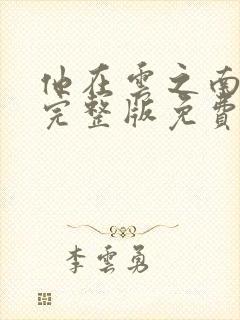 他在雲之南
完整版免費
李雲勇